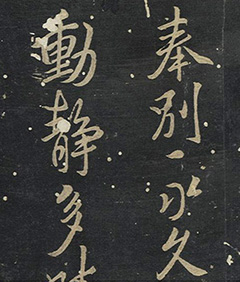 奉別永久
動靜多